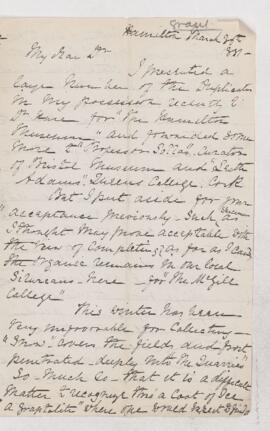 Grant
Hamilton March 30th
1881
My Dear Dr
I presented a
large number of the Duplicates
in my possession recently to
for "The Hamilton
Museum" and forwarded some
more to Professor Sollas, Curator
of Bristol Museum and "Leith
Adams", Queens College, Cork
But I put aside for your
acceptance previously such
I thought may prove acceptable with
the view of completing as far as I could
the organic remains in our local
Silurians here for "the McGill
College"
This winter has been
very unfavorable for Collecting
"Snow" covers the fields and frost
penetrated deeply into the Quarries
So much so that it is a difficult
matter to recognize thro a Coat of Ice
a graptolite where one would expect to find